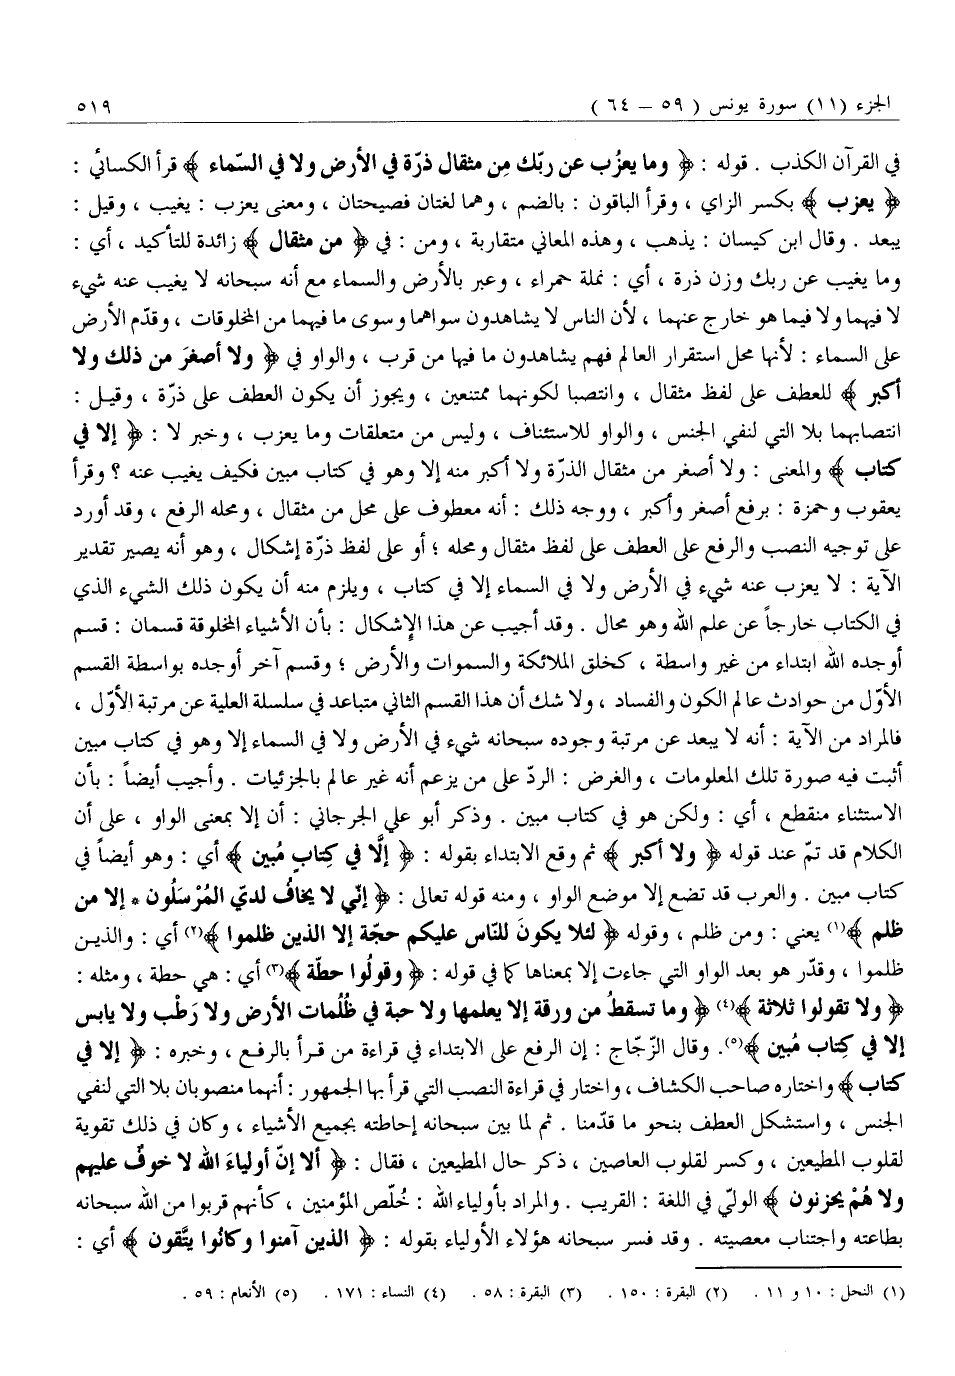 الجزء (١١) سورة يونس ( ٥٩ – ٦٤ ) ٥١٩
في القرآن الكذب . قوله : ﴿ وما يعزُب عن ربّك مِن مثقال ذرّة في الأرض ولا في السّماء ﴾ قرأ الكسائي :
﴿ يعزب ﴾ بكسر الزاي ، وقرأ الباقون : بالضم ، وهما لغتان فصيحتان ، ومعنى يعزب : يغيب ، وقيل :
يبعد . وقال ابن كيسان : يذهب ، وهذه المعاني متقاربة ، ومن : في ﴿ من مثقال ﴾ زائدة للتأكيد ، أي :
وما يغيب عن ربك وزن ذرة ، أي : نملة حمراء ، وعبر بالأرض والسماء مع أنه سبحانه لا يغيب عنه شيء
لا فيهما ولا فيما هو خارج عنهما ، لأن الناس لا يشاهدون سواهما وسوى ما فيهما من المخلوقات ، وقدّم الأرض
على السماء : لأنها محل استقرار العالم فهم يشاهدون ما فيها من قرب ، والواو في ﴿ ولا أصغرَ من ذلك ولا
أكبر ﴾ للعطف على لفظ مثقال ، وانتصبا لكونهما ممتنعين ، ويجوز أن يكون العطف على ذرّة ، وقيـل :
انتصابهما بلا التي لنفي الجنس ، والواو للاستئناف ، وليس من متعلقات وما يعزب ، وخبر لا : ﴿ إلا في
كتاب ﴾ والمعنى : ولا أصغر من مثقال الذرّة ولا أكبر منه إلا وهو في كتاب مبين فكيف يغيب عنه ؟ وقرأ
يعقوب وحمزة : برفع أصغر وأكبر ، ووجه ذلك : أنه معطوف على محل من مثقال ، ومحله الرفع ، وقد أورد
على توجيه النصب والرفع على العطف على لفظ مثقال ومحله ؛ أو على لفظ ذرّة إشكال ، وهو أنه يصير تقدير
الآية : لا يعزب عنه شيء في الأرض ولا في السماء إلا في كتاب ، ويلزم منه أن يكون ذلك الشيء الذي
في الكتاب خارجاً عن علم الله وهو محال . وقد أجيب عن هذا الإشكال : بأن الأشياء المخلوقة قسمان : قسم
أوجده الله ابتداء من غير واسطة ، كخلق الملائكة والسموات والأرض ؛ وقسم آخر أوجده بواسطة القسم
الأوّل من حوادث عالم الكون والفساد ، ولا شك أن هذا القسم الثاني متباعد في سلسلة العلية عن مرتبة الأوّل ،
فالمراد من الآية : أنه لا يبعد عن مرتبة وجوده سبحانه شيء في الأرض ولا في السماء إلا وهو في كتاب مبين
أثبت فيه صورة تلك المعلومات ، والغرض : الردّ على من يزعم أنه غير عالم بالجزئيات . وأجيب أيضاً : بأن
الاستثناء منقطع ، أي : ولكن هو في كتاب مبين . وذكر أبو علي الجرجاني : أن إلا بمعنى الواو ، على أن
الكلام قد تمّ عند قوله ﴿ ولا أكبر ﴾ ثم وقع الابتداء بقوله : ﴿ إلَّا في كِتابٍ مُبين ﴾ أي : وهو أيضاً في
كتاب مبين . والعرب قد تضع إلا موضع الواو ، ومنه قوله تعالى : ﴿ إنّي لا يخافُ لديّ المُرْسَلُون * إلا من
ظلم ﴾(١) يعني : ومن ظلم ، وقوله ﴿ لئلا يكونَ للنّاس عليكم حجّة إلا الذين ظلموا ﴾(٢) أي : والذيـن
ظلموا ، وقدّر هو بعد الواو التي جاءت إلا بمعناها كما في قوله : ﴿ وقولُوا حطّة ﴾(٣) أي : هي حطة ، ومثله :
﴿ ولا تقولوا ثلاثة ﴾(٤) ﴿ وما تسقطُ من ورقة إلا يعلمها ولا حبة في ظُلُمات الأرض ولا رَطْب ولا يابس
إلا في كِتاب مُبين ﴾(٥). وقال الزّجّاج : إن الرفع على الابتداء في قراءة من قـرأ بالرفـع ، وخبره : ﴿ إلا في
كتاب ﴾ واختاره صاحب الكشاف ، واختار في قراءة النصب التي قرأ بها الجمهور : أنهما منصوبان بلا التي لنفي
الجنس ، واستشكل العطف بنحو ما قدّمنا . ثم لما بين سبحانه إحاطته بجميع الأشياء ، وكان في ذلك تقوية
لقلوب المطيعين ، وكسر لقلوب العاصين ، ذكر حال المطيعين ، فقال : ﴿ ألا إنّ أولياءَ الله لا خوفٌ عليهم
ولا هُمْ يحزنون ﴾ الوليّ في اللغة : القريب . والمراد بأولياء الله : خُلّص المؤمنين ، كأنهم قربوا من الله سبحانه
بطاعته واجتناب معصيته . وقد فسر سبحانه هؤلاء الأولياء بقوله : ﴿ الذين آمنوا وكانُوا يتَّقون ﴾ أي :
(١) النحل : ١٠ و ١١ . (٢) البقرة : ١٥٠ . (٣) البقرة : ٥٨ . (٤) النساء : ١٧١ . (٥) الأنعام : ٥٩ .